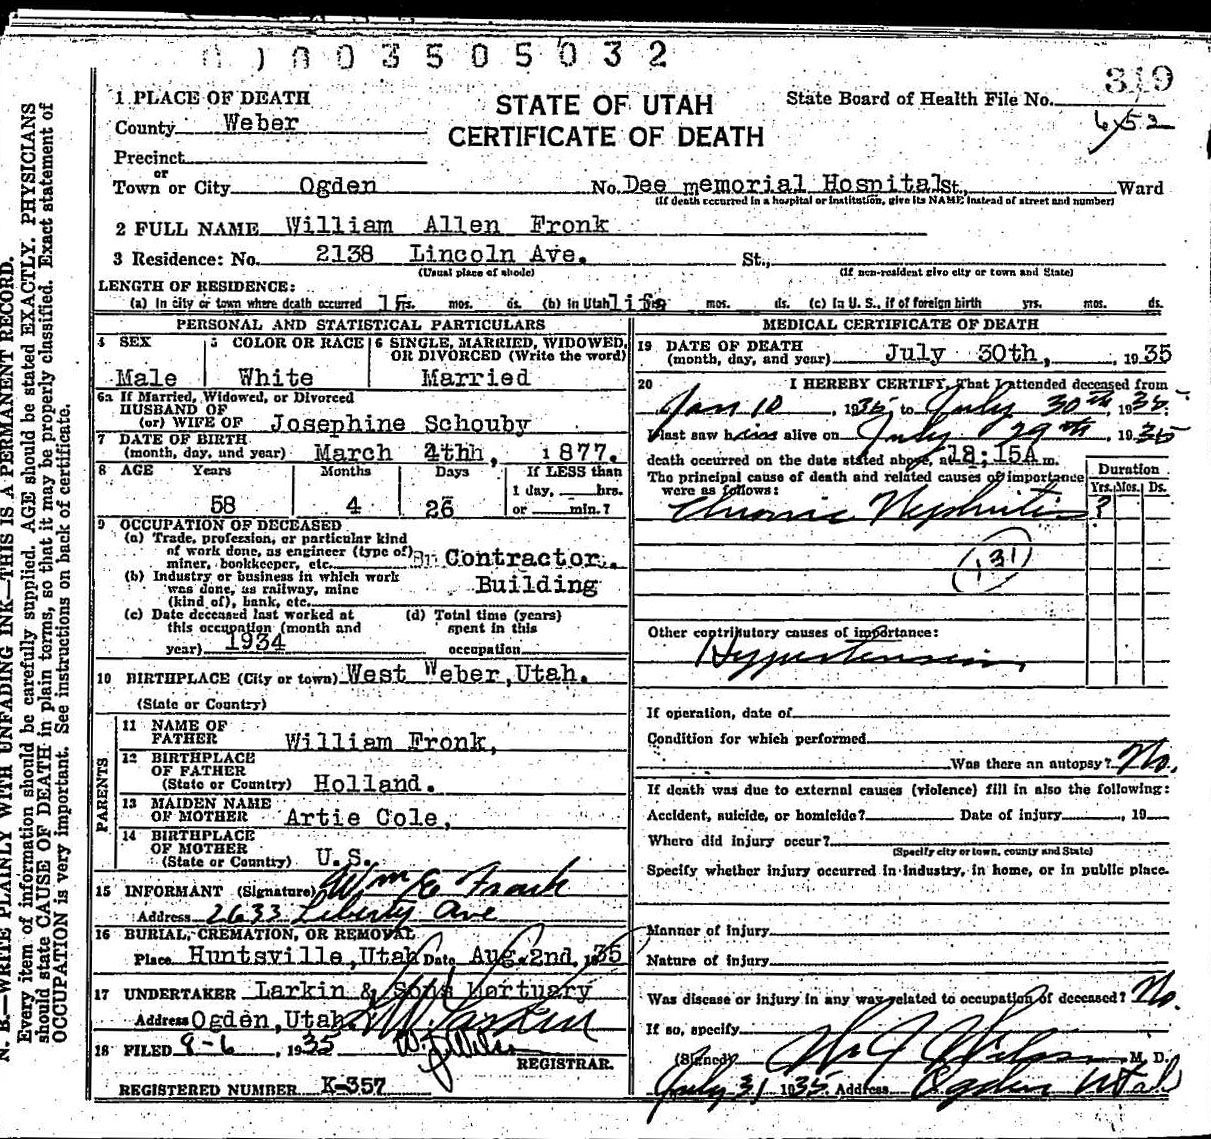 003505032
319
1 PLACE OF DEATH
STATE OF UTAH
State Board of Health File No.
County Weber
CERTIFICATE OF DEATH
Precinct
or
Town or City Ogden No. Dee memorial Hospital St., Ward
(If death occurred in a hospital or institution, give its NAME instead of street and number)
2 FULL NAME William Allen Fronk
3 Residence: No. 2138 Lincoln Ave. St.,
(Usual place of abode) (If non-resident give city or town and State)
LENGTH OF RESIDENCE:
(a) In city or town where death occurred yrs. mos. ds. (b) in Utah life mos. ds. (c) In U. S., if of foreign birth yrs. mos. ds.
PERSONAL AND STATISTICAL PARTICULARS
4 SEX 5 COLOR OR RACE 6 SINGLE, MARRIED, WIDOWED, OR DIVORCED (Write the word)
Male White Married
6a If Married, Widowed, or Divorced
HUSBAND OF
(or) WIFE OF Josephine Schouby
7 DATE OF BIRTH
(month, day, and year) March 4thh, 1877.
8 AGE Years Months Days If LESS than
1 day, hrs.
58 4 26 or min.?
9 OCCUPATION OF DECEASED
(a) Trade, profession, or particular kind
of work done, as engineer (type of)
miner, bookkeeper, etc. Contractor.
(b) Industry or business in which work
was done, as railway, mine
(kind of), bank, etc. Building
(c) Date deceased last worked at
this occupation (month and
year) 1934
(d) Total time (years)
spent in this
occupation
10 BIRTHPLACE (City or town) West Weber, Utah.
(State or Country)
PARENTS
11 NAME OF
FATHER William Fronk,
12 BIRTHPLACE
OF FATHER
(State or Country) Holland.
13 MAIDEN NAME
OF MOTHER Artie Cole,
14 BIRTHPLACE
OF MOTHER
(State or Country) U.S.
15 INFORMANT (Signature) Wm E Fronk
Address 2633 Liberty Ave
16 BURIAL, CREMATION, OR REMOVAL
Place Huntsville, Utah Date Aug. 2nd, 1935
17 UNDERTAKER Larkin & Sons Mortuary
Address Ogden, Utah.
18 FILED 8-6, 1935
REGISTRAR.
REGISTERED NUMBER K-357
MEDICAL CERTIFICATE OF DEATH
19 DATE OF DEATH
(month, day, and year) July 30th, 1935
20 I HEREBY CERTIFY, That I attended deceased from
Jan 10, 1935, to July 30th, 1935.
I last saw him alive on July 29th, 1935
death occurred on the date stated above, at 12;15A m.
The principal cause of death and related causes of importance
were as follows:
Duration
Yrs. Mos. Ds.
Chronic Nephritis ?
131
Other contributory causes of importance:
Hypertension
If operation, date of
Condition for which performed
Was there an autopsy? No.
If death was due to external causes (violence) fill in also the following:
Accident, suicide, or homicide? Date of injury, 19
Where did injury occur?
(Specify city or town, county and State)
Specify whether injury occurred in industry, in home, or in public place.
Manner of injury
Nature of injury
Was disease or injury in any way related to occupation of deceased? No.
If so, specify
(Signed) M. D.
July 31 1935 Address Ogden Utah
N. B.—WRITE PLAINLY WITH UNFADING INK—THIS IS A PERMANENT RECORD.
Every item of information should be carefully supplied. AGE should be stated EXACTLY. PHYSICIANS
should state CAUSE OF DEATH in plain terms, so that it may be properly classified. Exact statement of
OCCUPATION is very important. See instructions on back of certificate.